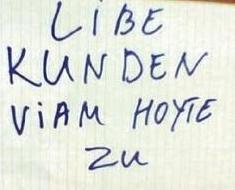 LIBE
KUNDEN
ViAM HOYTE
ZU